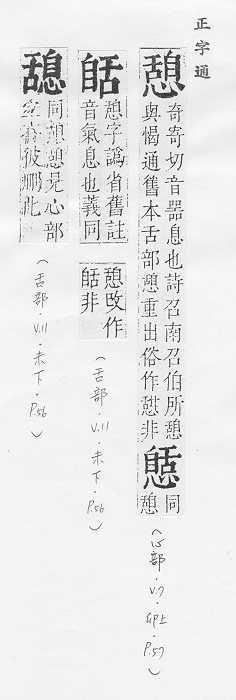 正字通
憩
奇寄切音器息也詩召南召伯所憩
與愒通舊本舌部憩重出俗作憇非
同
憩
(心部.V.7.卯上.P.57)
憩字譌省舊註
音氣息也義同
憩改作
非
(舌部.V.11.未下.P.56)
同憩憩見心部
彼刪此
(舌部.V.11.未下.P.56)